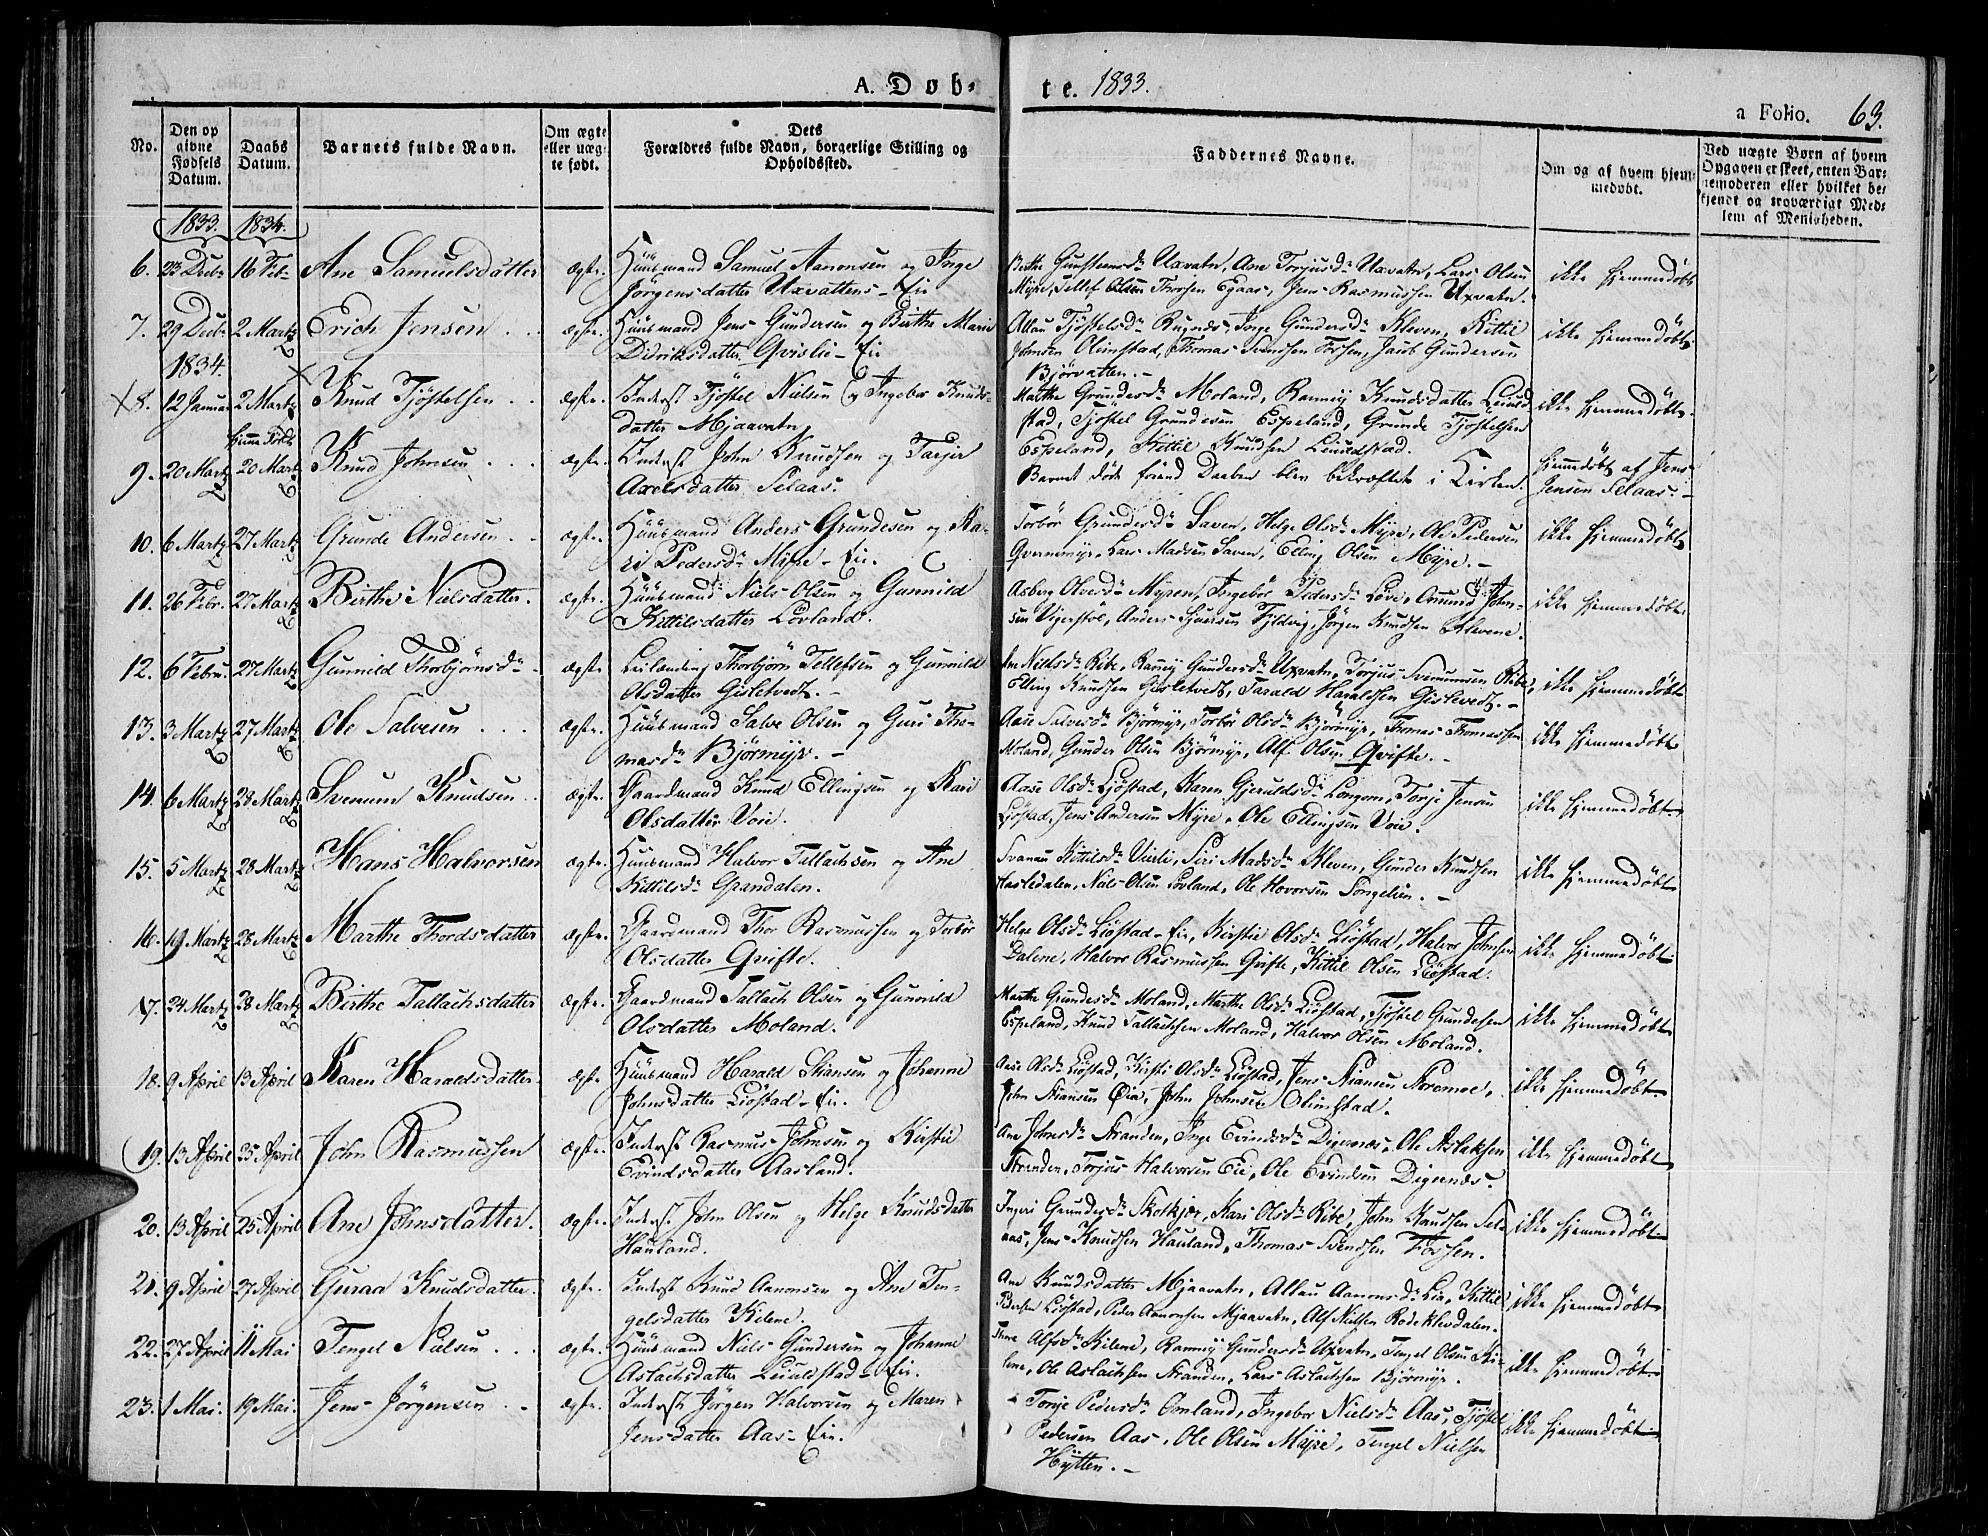 A. Døb-
te. 1833.
a Folio. 63.
No.
Den opgivne Fødsels Datum.
Daabs Datum.
Barnets fulde Navn.
Om ægte eller uægte født.
Dets Forældres fulde Navn, borgerlige Stilling og Opholdssted.
Faddernes Navne.
Om og af hvem hjemmedøbt.
Ved uægte Børn af hvem Opgaven er skeet, enten Barnemoderen eller hvilket bekjendt og troværdigt Medlem af Menigheden.
1833. 1834.
6. 23 Decbr 16 Febr Ane Samuelsdatter ægte. Huusmand Samuel Aanonsen og Inge
Jörgensdatter Uxvattens-Eie
Birthe Gunsteensdr Uxvatn, Ane Torjusdr Uxvatn, Lars Olsen
Myre, Tellef Thorsen Egaas, Jens Rasmussen Uxvatn.
ikke hjemmedöbt
7. 29 Decbr 2 Martz Erich Jensen ægte. Huusmand Jens Gundersen og Birthe Marie
Didriksdatter Qvislie-Eie
Allau Tjöstelsdr Inge Gundersdr Kleven, Kittil
Johnsen Olimstad, Thomas Svendsen Fossen, Jacob Gundersen
Björvatten.
ikke hjemmedöbt
1834.
8. 12 Januar 2 Martz Knud Tjöstelsen ægte. Inderst Tjöstel Nielsen og Ingebor Knuds-
datter Mjaavatn
Marthe Grundesdr Moland, Ramnöy Knudsdatter Leiuld
stad, Tjöstel Grundesen Espeland, Grunde Tjöstelsen
Espeland, Kittil Knudsen Leiuldstad.
ikke hjemmedöbt
hjemmedöbt
9. 20 Martz 20 Martz Knud Johnsen ægte. Inderst John Knudsen og Tarjer
Axelsdatter Selaas.
Barnet döde förend Daaben blev bekræftet i Kirken.
hjemmedöbt af Jens
Jensen Selaas.
10. 6 Martz 27 Martz Grunde Andersen ægte. Huusmand Anders Grundesen og Ka-
ri Pedersdr Myhre-Eie.
Torbör Grundesdr Saven, Helge Olsdr Myre, Ole Pedersen
Qvernmyr, Lars Madsen Saven, Elling Olsen Myre.
ikke hjemmedöbt
11. 26 Febr. 27 Martz Birthe Nielsdatter. ægte. Huusmand Niels Olsen og Gunnild
Kittilsdatter Lövland.
Asberg Olvesdr Myren, Ingebör Pedersdr Löve, Omund John-
sen Vigerstöl, Anders Fjeldvig, Jörgen Knudsen Klevene.
ikke hjemmedöbt
12. 6 Febru. 27 Martz Gunnild Thorbjörnsdr ægte. Leilænding Thorbjörn Tellefsen og Gunnild
Olsdatter Gisletvedt.
Ane Nielsdr Ribe, Ramnöy Gundersdr Uxvatn, Torjus Svenumsen Ribe,
Elling Knudsen Gisletvedt, Tarald Haraldsen Gisletvedt.
ikke hjemmedöbt
13. 3 Martz 27 Martz Ole Salvesen ægte. Huusmand Salve Olsen og Guri Tho-
masdr Björmyr.
Aase Salvesdr Björmyr, Torbör Olsdr Björmyr, Thomas Thomassen
Moland, Gunder Olsen Björmyr, Alf Olsen Qvifte.
ikke hjemmedöbt
14. 6 Martz 28 Martz Svenum Knudsen ægte. Gaardmand Knud Ellingsen og Kari
Olsdatter Voie.
Aase Olsdr Liöstad, Karen Gjeruldsdr Longom, Torje Jensen
Liöstad, Jens Andersen Myre, Ole Ellingsen Voie.
ikke hjemmedöbt
15. 5 Martz 28 Martz Hans Halvorsen ægte. Huusmand Halvor Tallachsen og Ane
Kittilsdr Grandalen.
Svanau Kittilsdr Vierli, Siri Madsdr Kleven, Gunder Knudsen
Hasledalen, Niels Olsen Lovland, Ole Hovorsen Songelien.
ikke hjemmedöbt
16. 19 Martz 28 Martz Marthe Thordsdatter ægte. Gaardmand Thor Rasmussen og Torbör
Olsdatter Qvifte.
Helge Olsdr Liöstad-Eie, Kirstie Olsdr Liöstad, Halvor Johnsen
Dalene, Halvor Rasmussen Qvifte, Kittil Olsen Liöstad.
ikke hjemmedöbt
17. 24 Martz 28 Martz Birthe Tallachsdatter ægte. Gaardmand Tallach Olsen og Gunnild
Olsdatter Moland.
Marthe Grundesdr Moland, Marthe Olsdr Liöstad, Tjöstel Grundesen
Espeland, Knud Tallachsen Moland, Halvor Olsen Moland.
ikke hjemmedöbt
18. 9 April 13 April Karen Haraldsdatter ægte. Huusmand Harald Stiansen og Johanne
Johnsdatter Liöstad-Eie.
Aase Olsdr Liöstad, Kirsti Olsdr Liöstad, Jens
John Stiansen Öia, John Johnsen Olimstad.
ikke hjemmedöbt
19. 13 April 25 April John Rasmussen ægte. Inderst Rasmus Johnsen og Kirstie
Evindsdatter Aasland.
Ane Johnsdr Stranden, Inge Evindsdr Digernæs, Ole Aslaksen
Stranden, Torjus Halvorsen Eie, Ole Evindsen Digernæs.
ikke hjemmedöbt
20. 13 April 25 April Ane Johnsdatter. ægte. Inderst John Olsen og Helge Knudsdatter
Hauland.
Ingeri Grundesdr Skotkjær, Kari Olsdr Ribe, John Knudsen Sel-
aas, Jens Knudsen Hauland, Thomas Svendsen Fossen.
ikke hjemmedöbt
21. 9 April 27 April Guroe Knudsdatter. ægte. Inderst Knud Aanonsen og Ane Ten-
gelsdatter Kilene.
Ane Knudsdatter Mjaavatn, Allau Aanonsdr Lia, Kittil
Liöstad, Peder Aanonsen Mjaavatn, Alf Nielsen Rödeklevdalen.
ikke hjemmedöbt
22. 27 April 11 Mai Tengel Nielsen ægte. Huusmand Niels Gundersen og Johanne
Aslachsdatter Leiuldstad-Eie.
Thore Alfsdr Kilene, Ramnöy Gundersdr Uxvatn, Tengel Olsen Ki-
lene, Ole Aslachsen Stranden, Lars Aslachsen Björmyr.
ikke hjemmedöbt
23. 1 Mai. 19 Mai. Jens Jörgensen ægte. Inderst Jörgen Halvorsen og Maren
Jensdatter Aas-Eie.
Torje Pedersdr Omland, Ingebor Nielsdr Aas, Tjöstel
Pedersen Aas, Ole Olsen Myre, Tengel Nielsen
Hytten.
ikke hjemmedöbt